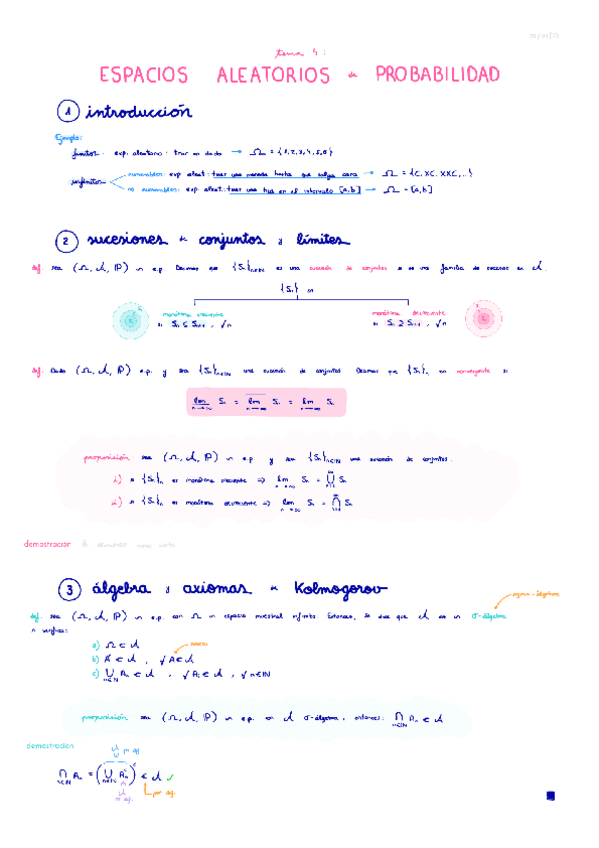 tema 4:
ESPACIOS ALEATORIOS de PROBABILIDAD
1 introducción
Ejemplo:
finitos: exp. aleatorio: tirar un dado → Ω = {1,2,3,4,5,6}
infinitos
numerables: exp aleat: tirar una moneda hasta que salga cara → Ω = {C, XC, XXC, ...}
no numerables: exp aleat: tirar una en el intervalo [a,b] → Ω = [a,b]
2 sucesiones de conjuntos y límites
def. sea (Ω, A, P) un e.p. Decimos que {Sn}n∈ℕ es una sucesión de conjuntos si es una familia de sucesos en A.
{Sn} es
monótona creciente
si Sn ⊆ Sn+1, ∀n
monótona decreciente
si Sn ⊇ Sn+1, ∀n
def. Dado (Ω, A, P) e.p. y sea {Sn}n∈ℕ una sucesión de conjuntos. Decimos que {Sn}n es convergente si
lim Sn = lim Sn = lim Sn
n→∞ n→∞ n→∞
proposición sea (Ω, A, P) un e.p. y sea {Sn}n∈ℕ una sucesión de conjuntos.
1) si {Sn}n es monótona creciente ⇒ lim n→∞ Sn = ∪ Sn
2) si {Sn}n es monótona decreciente ⇒ lim n→∞ Sn = ∩ Sn
demostración
3 álgebra y axiomas de Kolmogorov
sigma-álgebra
def. sea (Ω, A, P) un e.p. con Ω un espacio muestral infinito. Entonces, se dice que A es un σ-álgebra
si verifica:
a) Ω ∈ A
b) Ā ∈ A, ∀A ∈ A
c) ∪n∈ℕ An ∈ A, ∀Ai ∈ A, ∀n∈ℕ
proposición sea (Ω, A, P) un e.p. con A σ-álgebra, entonces: ∩n∈ℕ An ∈ A
demostración
A por def.
∩n∈ℕ An = (∪n∈ℕ Anᶜ)ᶜ ∈ A ✓
por def.